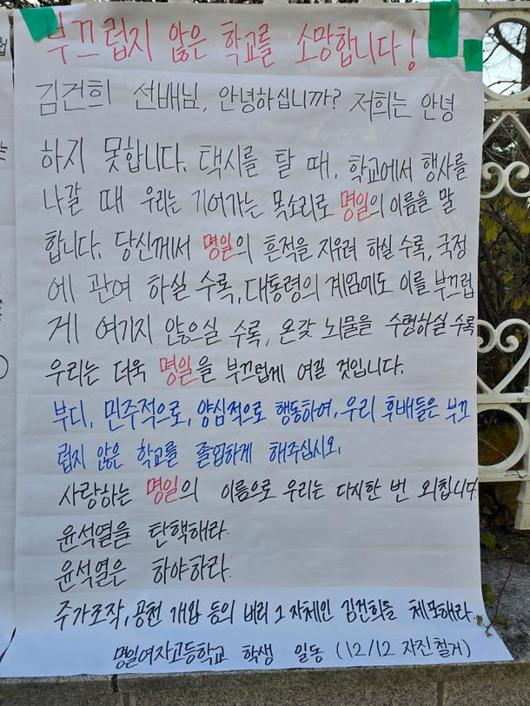 부끄럽지 않은 학교를 소망합니다!
김건희 선배님, 안녕하십니까? 저희는 안녕
하지 못합니다. 택시를 탈 때, 학교에서 행사를
나갈 때 우리는 기어가는 목소리로 명일의 이름을 말
합니다. 당신께서 명일의 흔적을 지우려 하실 수록, 국정
에 관여 하실 수록, 대통령의 계엄에도 이를 부끄럽
게 여기지 않으실 수록, 온갖 뇌물을 수령하실 수록
우리는 더욱 명일을 부끄럽게 여길 것입니다.
부디, 민주적으로, 양심적으로 행동하여, 우리 후배들은 부끄
럽지 않은 학교를 졸업하게 해주십시오.
사랑하는 명일의 이름으로 우리는 다시한 번 외칩니다
윤석열을 탄핵해라.
윤석열은 하야하라.
주가조작, 공천 개입 등의 비리 그 자체인 김건희를 체포해라.
명일여자고등학교 학생 일동 (12/12 자진철거)